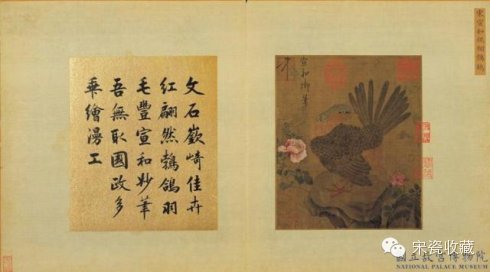 宣和御筆
文石嶔崎佳卉
紅翩然鵓鴿羽
毛豐宣和妙筆
吾無取國政多
乖繪漫工
宋瓷收藏
國立故宮博物院
NATIONAL PALACE MUSEUM